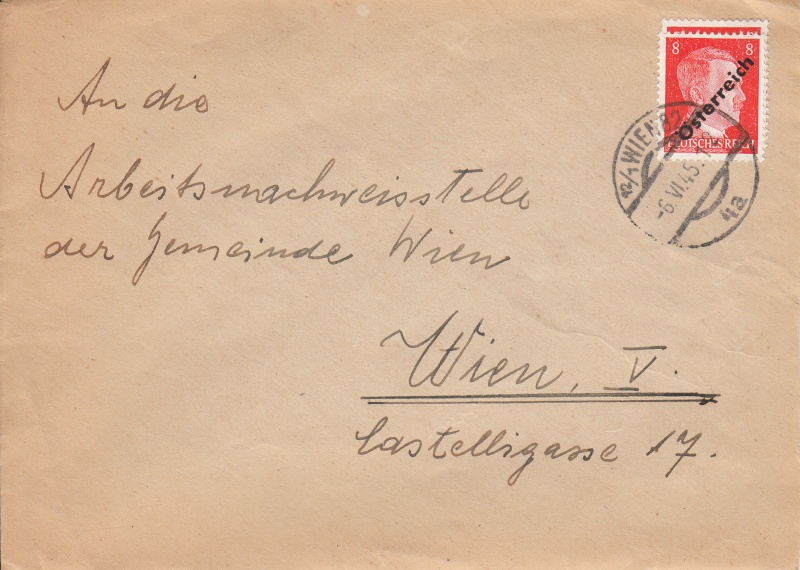 8 8
Österreich
DEUTSCHES REICH
12/1 WIEN 82
-6.VI.45.
4a
An die
Arbeitsnachweisstelle
der Gemeinde Wien
Wien, V.
Castelligasse 17.